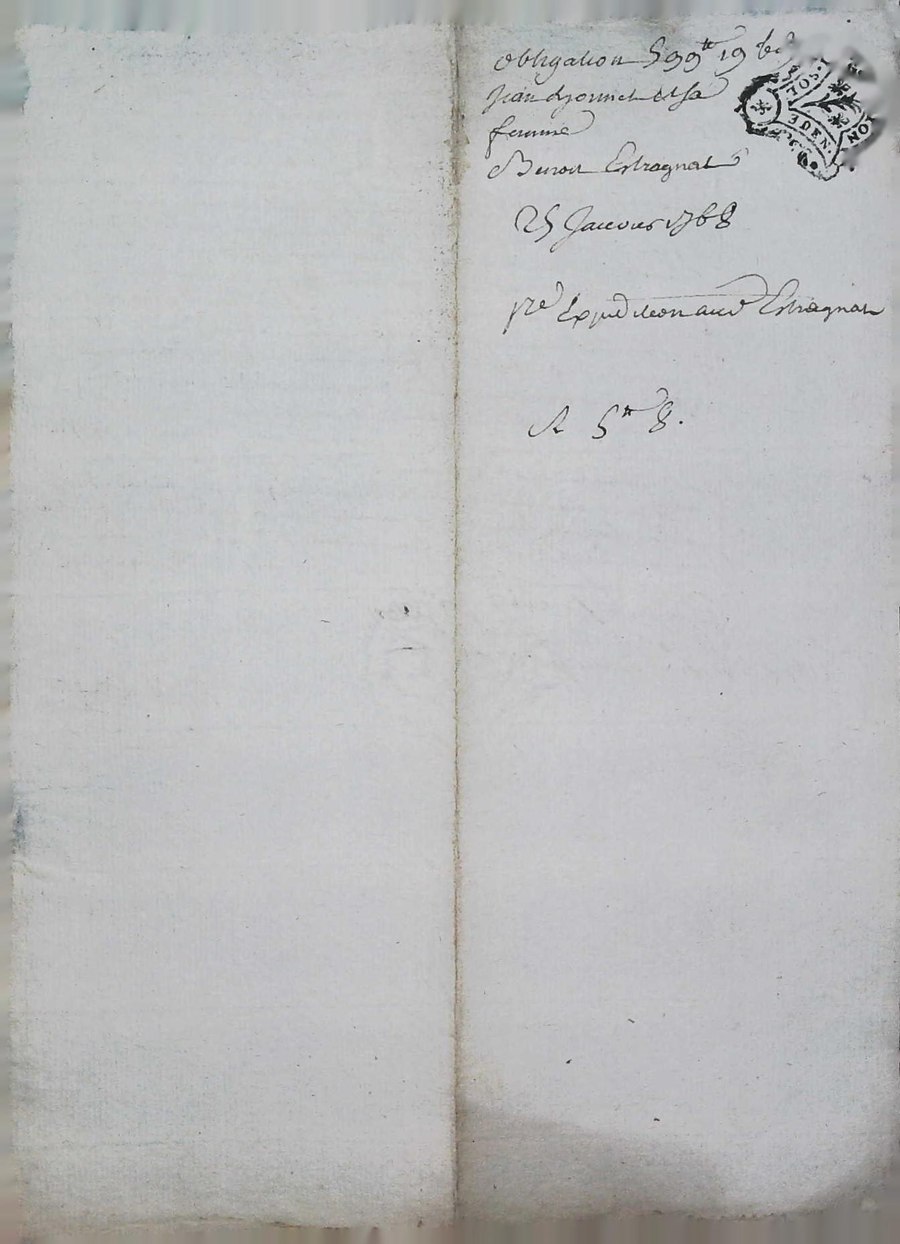 obligation 599ᵗᵗ 19
Jean Lyonnet et sa
femme
Benoit Estragnat
25 Janvier 1768
pre Expedition aud Estragnat
R 5ᵗᵗ 8.
TOS.
3 DEN.